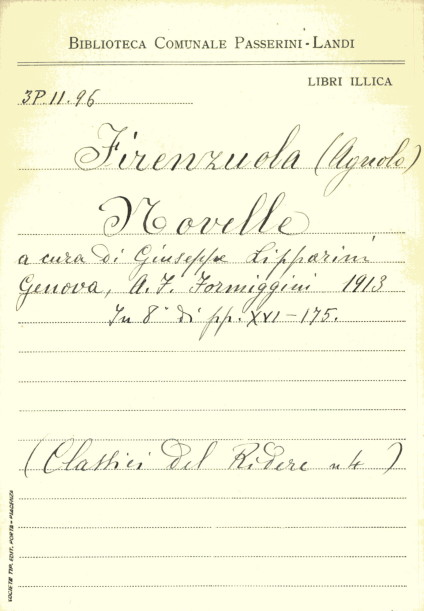 BIBLIOTECA COMUNALE PASSERINI-LANDI
LIBRI ILLICA
3P.11.96
Firenzuola (Agnolo)
Novelle
a cura di Giuseppe Lipparini
Genova, A. F. Formiggini 1913
In 8° di pp. XVI-175.
(Classici del Ridere n 4)
SOCIETÀ TIP. EDIT. PORTA - PIACENZA